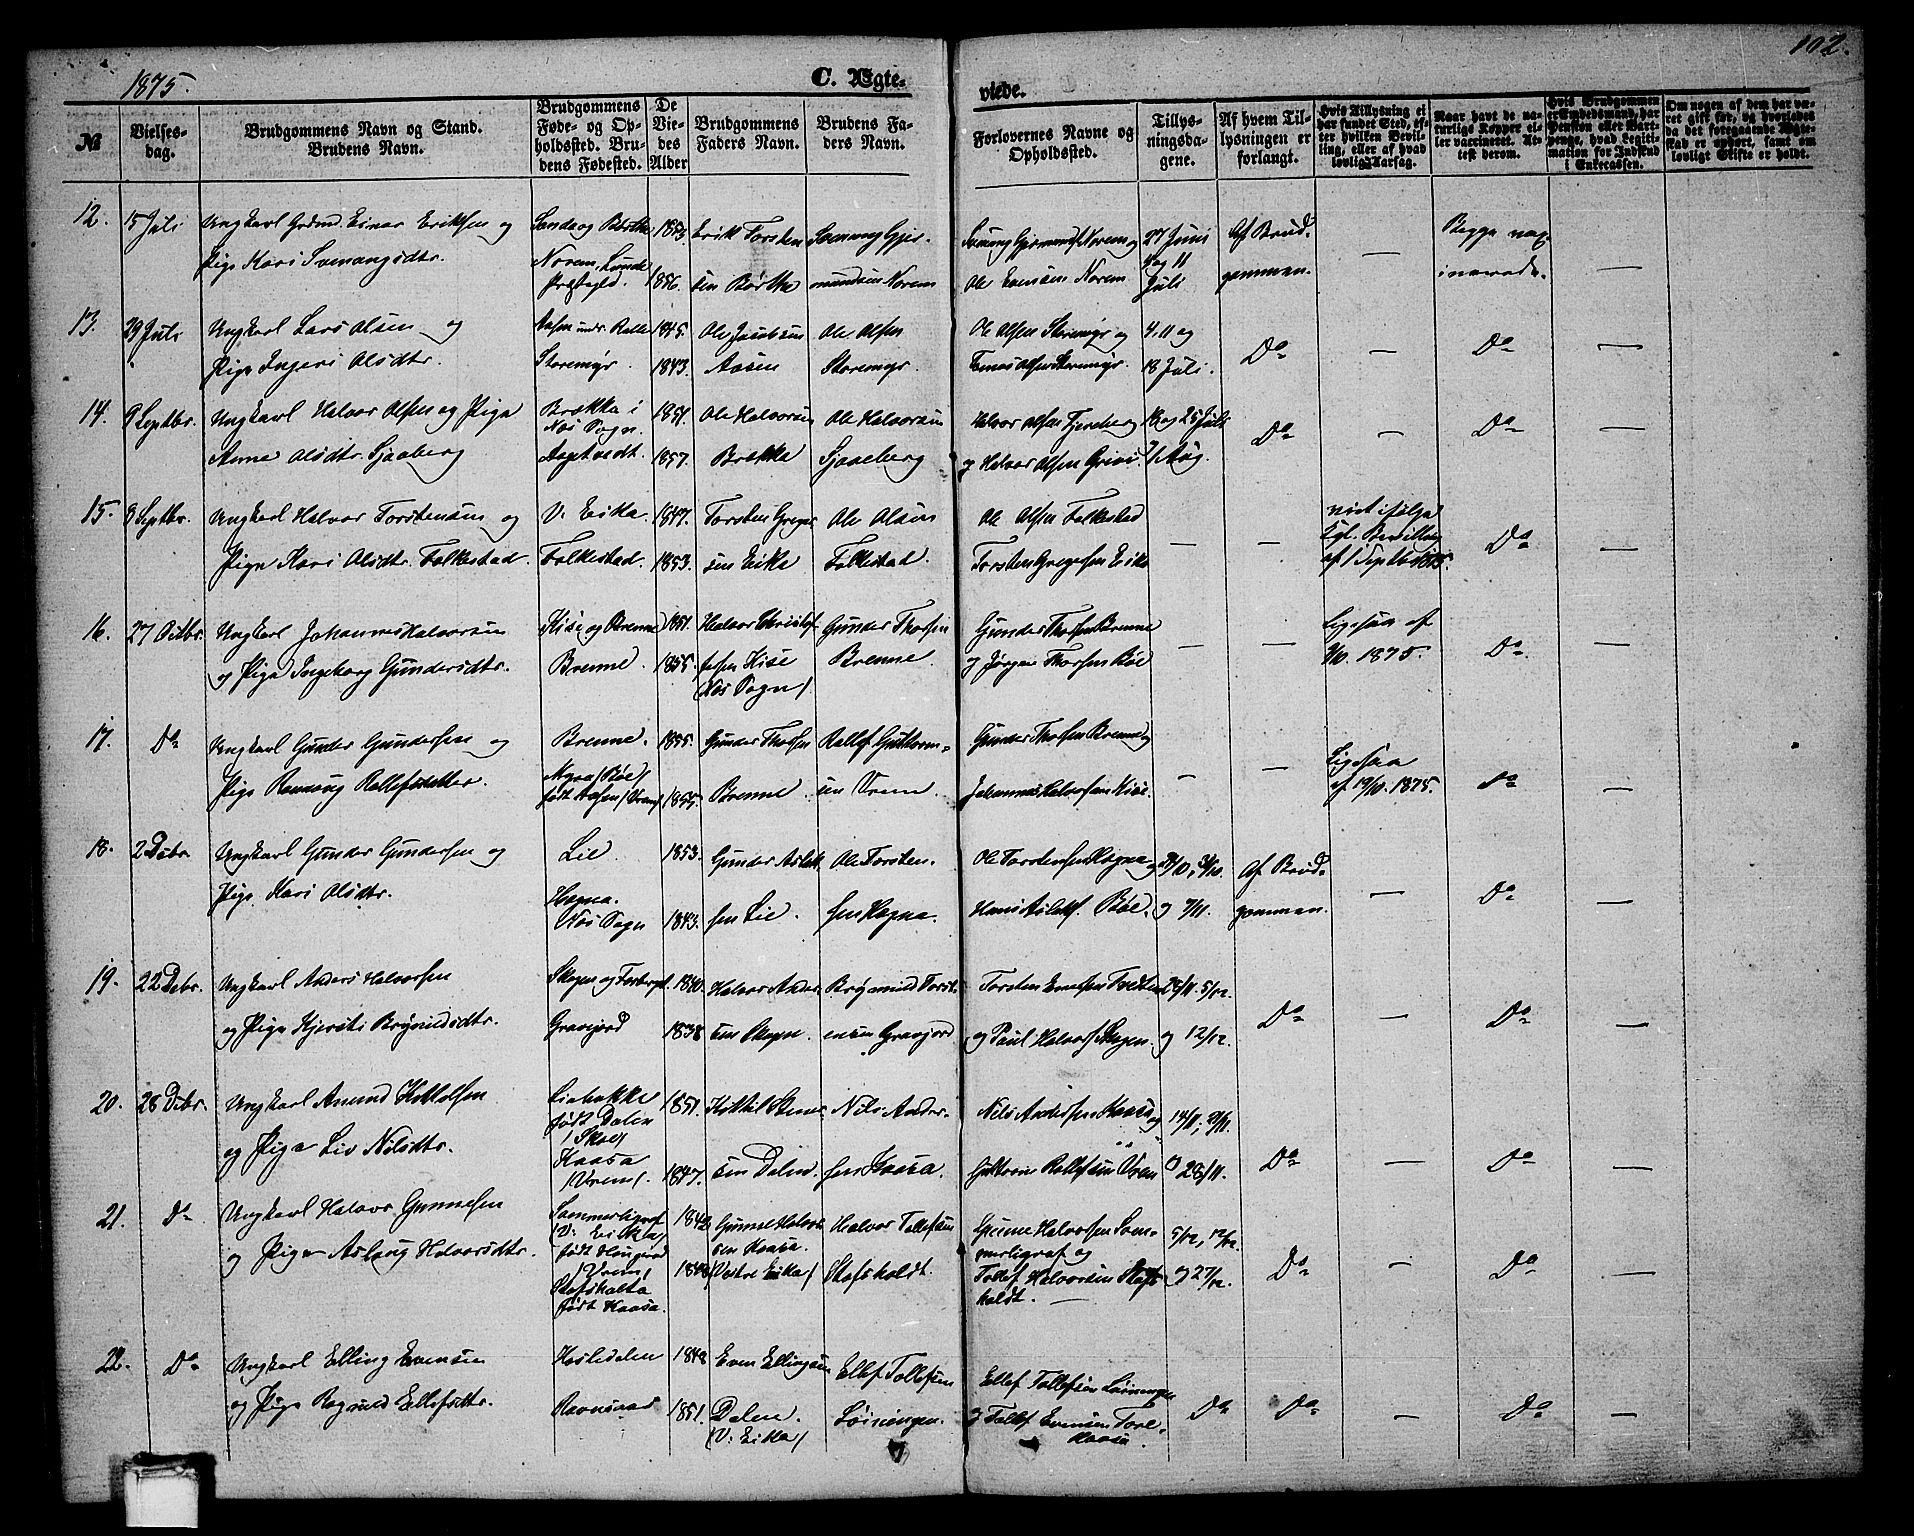 1875.
C. Ægte-
viede.
102.
№
Vielses-
dag.
Brudgommens Navn og Stand.
Brudens Navn.
Brudgommens
Føde- og Op-
holdssted. Bru-
dens Fødested.
De
Vie-
des
Alder
Brudgommens
Faders Navn.
Brudens Fa-
ders Navn.
Forlovernes Navne og
Opholdssted.
Tillys-
ningsda-
gene.
Af hvem Til-
lysningen er
forlangt.
Hvis Tillysning ei
har fundet Sted, ef-
ter hvilken Bevil-
ling, eller af hvad
lovlig Aarsag.
Naar havt de na-
turlige Kopper el-
ler vaccineret. At-
test derom.
Hvis Brudgommen
er Embedsmand, har
Pension eller Vart-
penge, hvad Legiti-
mation for Indskud
i Enkecassen.
Om nogen af dem har væ-
ret gift før, og hvorledes
da det foregaaende Ægte-
skab er ophørt, samt om
lovligt Skifte er holdt.
12. 15 Juli Ungkarl Einar Eriksen og
Pige Kari Svenungsdtr.
Norem, Lunde
Præstegjld.
1853
1856.
Erik Torsten
sen Børthe
Svenung Gjer-
mundsen Norem
Svenung Gjermunds. Norem og
Ole Evensen Norem
27 Juni
4 og 11
Juli
Af Brud-
gommen.
Begge vac-
inerede.
13. 29 Juli Ungkarl Lars Olsen og
Pige Ingeri Olsdtr.
Storemyr.
1845.
1843.
Ole Jacobsen
Aasen
Ole Olsen
Storemyr.
Ole Olsen Storemyr og
Tomas Olsen Storemyr.
4. 11 og
18 Juli.
Do
Do
14. 9 Septbr. Ungkarl Halvor Olsen og Pige
Anne Olsdtr. Sjaaberg
Brekka i
Nes Sogn.
1851.
1857.
Ole Halvorsen
Brekka
Ole Halvorsen
Sjaaberg
Halvor Olsen
og Halvor Olsen Grivi.
18 og 25 Juli
1 Aug.
Do
Do
15. 9 Septbr. Ungkarl Halvor Torstensen og
Pige Kari Olsdtr. Folkestad.
V. Eika.
Folkestad.
1847.
1853.
Torsten Greger
sen Eika
Ole Olsen
Folkestad.
Ole Olsen Folkestad
Torsten Gregersen Eika
viet ifølge
Kgl. Bevilling
af 1 Septbr 1875.
Do
16. 27 Octbr. Ungkarl Johannes Halvorsen
og Pige Ingeborg Gundersdtr.
Kise og Brenne
Brenne.
1851.
1855
Halvor Christof
fersen Kise
(Nes Sogn)
Gunder Thorsen
Brenne.
Gunder Thorsen Brenne
og Jørgen Thorsen Bøe
Ligesaa af
1875.
Do.
17. Do Ungkarl Gunder Gundersen og
Pige Rollefsdatter.
Brenne.
Myra (Bøe)
født Aasen (Vrem)
1855.
1855.
Gunder Thorsen
Brenne.
Rollef Guttorm-
sen Vrem.
Gunder Thorsen Brenne og
Johannes Halvorsen Kise.
Ligesaa
af 19/10. 1875.
Do
18. 2 Debr. Ungkarl Gunder Gundersen og
Pige Kari Olsdtr.
Lie.
Hagna.
Nes Sogn
1853.
1843.
Gunder Aslak
sen Lie.
Ole Torsten-
sen Hagna.
Ole Torstensen Hagna og
Bøe.
og 7/11.
Af Brud-
gommen.
Do
19. 22 Debr. Ungkarl Anders Halvorsen
og Pige Kjersti Brynildsdtr.
Gravjord
1840.
1838
Halvor Anders
sen Skogen.
Brynild Torst-
ensen Gravjord
Torsten Evensen
og Paul Halvors. Skogen.
28/11. 5/12.
og 12/12.
Do
Do
20. 28 Debr. Ungkarl Amund Kittilsen
og Pige Liv Nilsdtr.
Liabakke
født Dalen
Kaasa
(Vrem).
1851.
1847.
Kittil
sen Dalen.
Nils Ander-
sen Kaasa.
Nils Andersen Kaasa og
Guttorm Rollefsen Vrem
14/11; 21/11.
og 28/11.
Do
Do
21. Do Ungkarl Halvor Gunnelsen
og Pige Aslaug Halvorsdtr.
Sommerligraf
(V: Eika)
født Haugerud
(Vrem)
Stafshalta
født Kaasa.
1842
1848
Gunnel Halvor
sen Kaasa.
(Vestre Eika)
Halvor Tollefsen
Stafsholdt.
Gunne Halvorsen Som-
merligraf og
Tollef Halvorsen Stafs
holdt.
5/12, 12/12.
og 27/12.
Do
Do
22. Do Ungkarl Elling Evensen
og Pige Ragnild Ellefsdtr.
Haslidalen
Ravnaas
1848
1851.
Even Ellingsen
Dalen.
(V: Eika)
Ellef Tollefsen
Løiningen.
Ellef Tollefsen Løiningen
og Tollef Evensen Tore-
kaasa.
Do
Do
Do